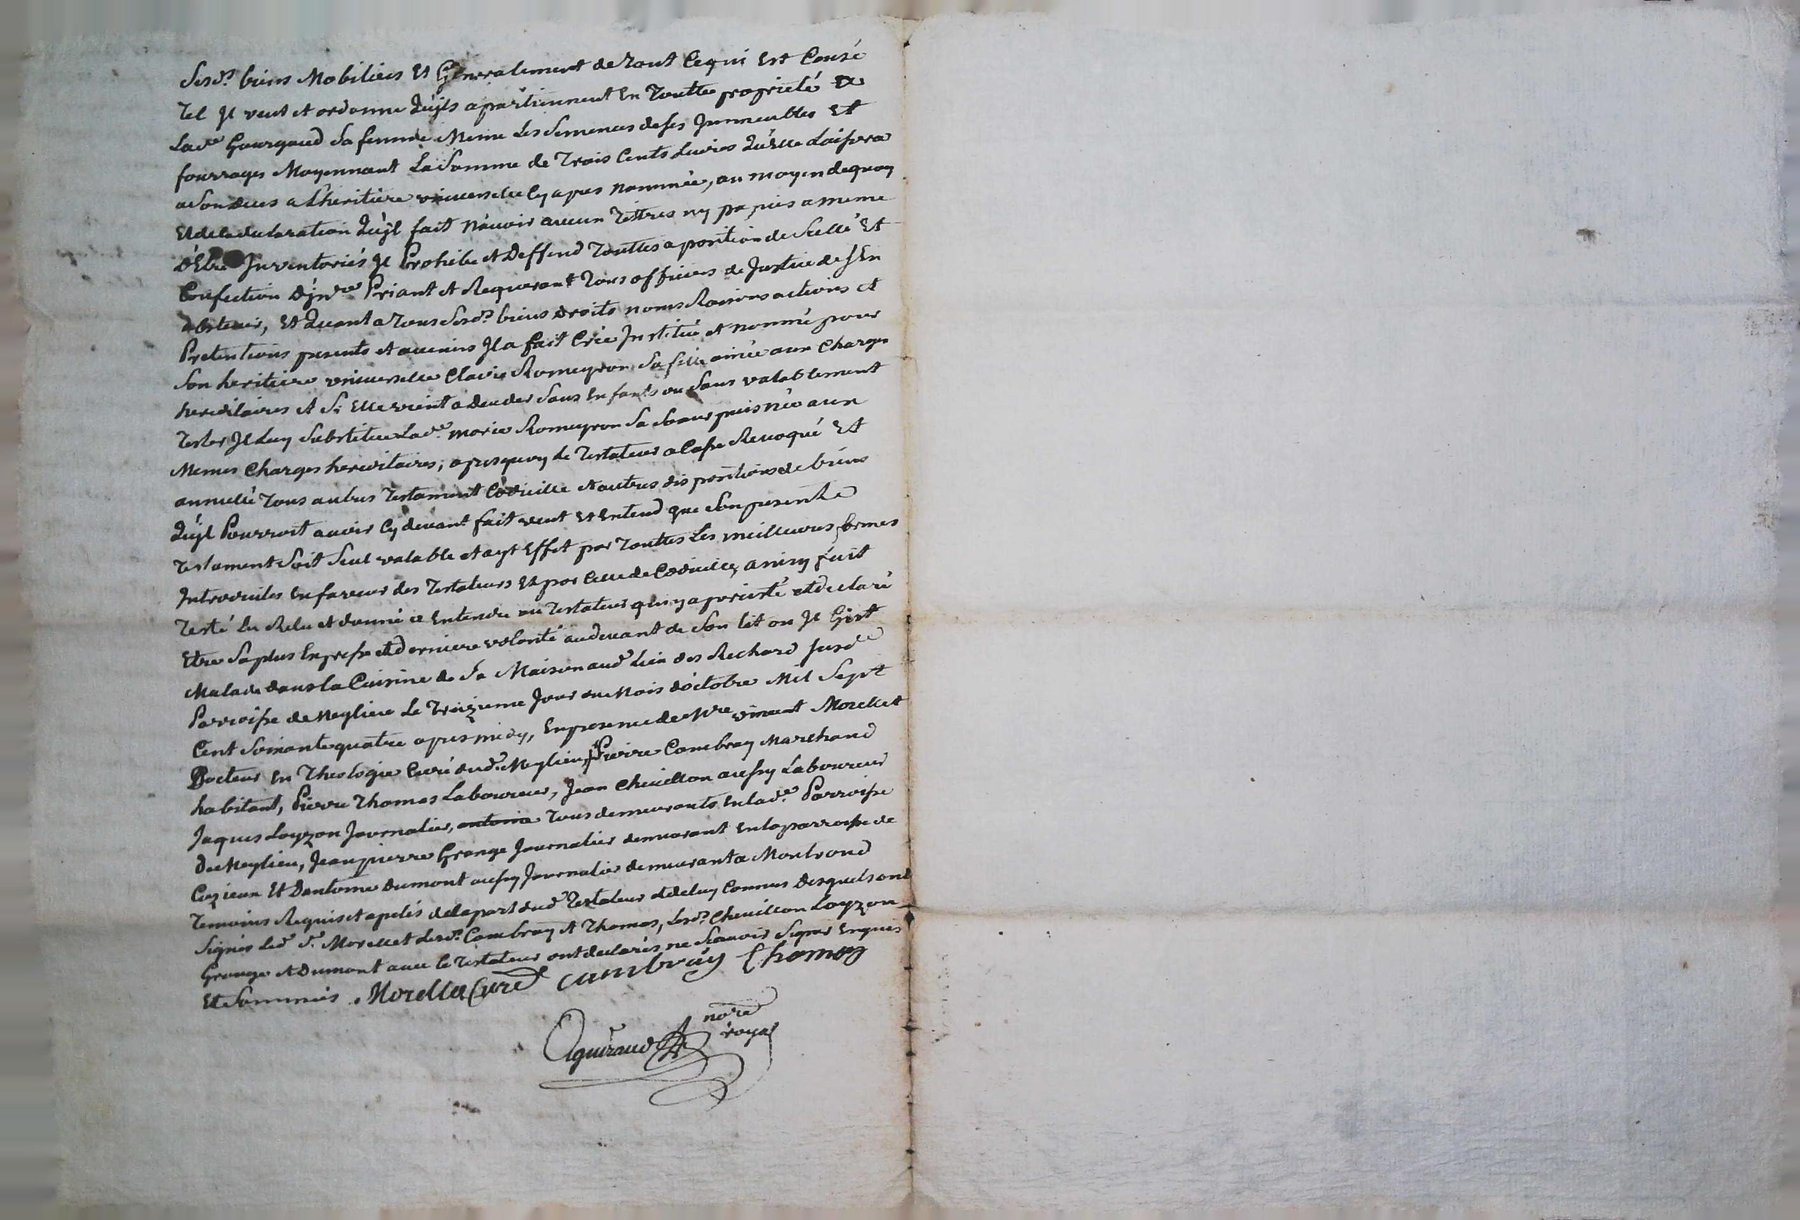 Sesd.s biens Mobiliers Et Generalement de Tout Cequi Est Censé
Tel Jl veut et ordonne Qujls apartiennent En Toutte proprieté a
Lad.e Gourgaud Sa femme Meme Les Semences de Ses Jmmeubles Et
fourrages Moyennant La Somme de Trois Cents Livres Qu'Elle Laissera
a Son deces a Lheritiere universelle Cy apres nommée, au moyen dequoy
Et de La declaration Qu'jl fait N'avoir aucun Tittres ny papiers a meme
D'Etre Jnventoriés Jl Prohibe et Deffend Touttes aposition de Scellé Et
Confection D'jnv.re Priant et Requerant Tous officiers de Justice de S'En
abstenir, Et Quant a Tous Sesd.s biens Droits noms Raisons actions et
Pretentions presents et avenirs Jl a fait Créé Jnstitué et nommé pour
Son heritiere universelle Clavie Romeyron Sa fille ainée aux Charges
hereditaires et Si Elle vient a Deceder Sans Enfants ou Sans valablement
Tester Jl Luy Substitue Lad.e marie Romeyron Sa Soeur puis née aux
Memes Charges hereditaires; apres quoy Le Testateur a Cassé Revoqué Et
annullé Tous autres Testament Codicille et autres dispositions de biens
Qu'jl Pourroit avoir Cy devant fait veut Et Entend que Son present
Testament Soit Seul valable et ayt Effet par Touttes Les meilleures formes
Jntroduites En faveur des Testateurs Et par Celle de Codicille, ainsy fait
Testé Lu Relu et donné a Entendre au Testateur qui y a persisté et declaré
Etre Sa plus Expresse et Derniere volonté au devant de Son Lit ou Jl Gist
Malade dans La Cuisine de Sa Maison aud. Lieu des Rechard Jusd.e
Parroisse de Meylieu Le Treizieme Jour du Mois d'octobre Mil Sept
Cent Soixante quatre apres midy, En presence de M.re vincent Morellet
Docteur En Theologie Curé dud. Meylieu, S.r Pierre Cambray Marchand
habitant, Pierre Thomas Laboureur, Jean Chevillon aussy Laboureur
Jaques Loyzon Journalier, antoine Tous demeurants En Lad.e Parroisse
De Meylieu, Jean pierre Grange Journalier demeurant En La parroisse de
Cuzieux Et D'antoine Dumont aussy Journalier demeurant a Montrond
Temoins Requis et apelés de La part dud. Testateur et de Luy Connus Desquels ont
Signés Led. S.r Morellet Lesd.s Cambray et Thomas, Lesd.s Chevillon Loyzon
Grange et Dumont avec le Testateur ont declarés ne Scavoir Signer Enquis
Et Sommés. Morellet Curé Cambray Thomas
no.re
royal